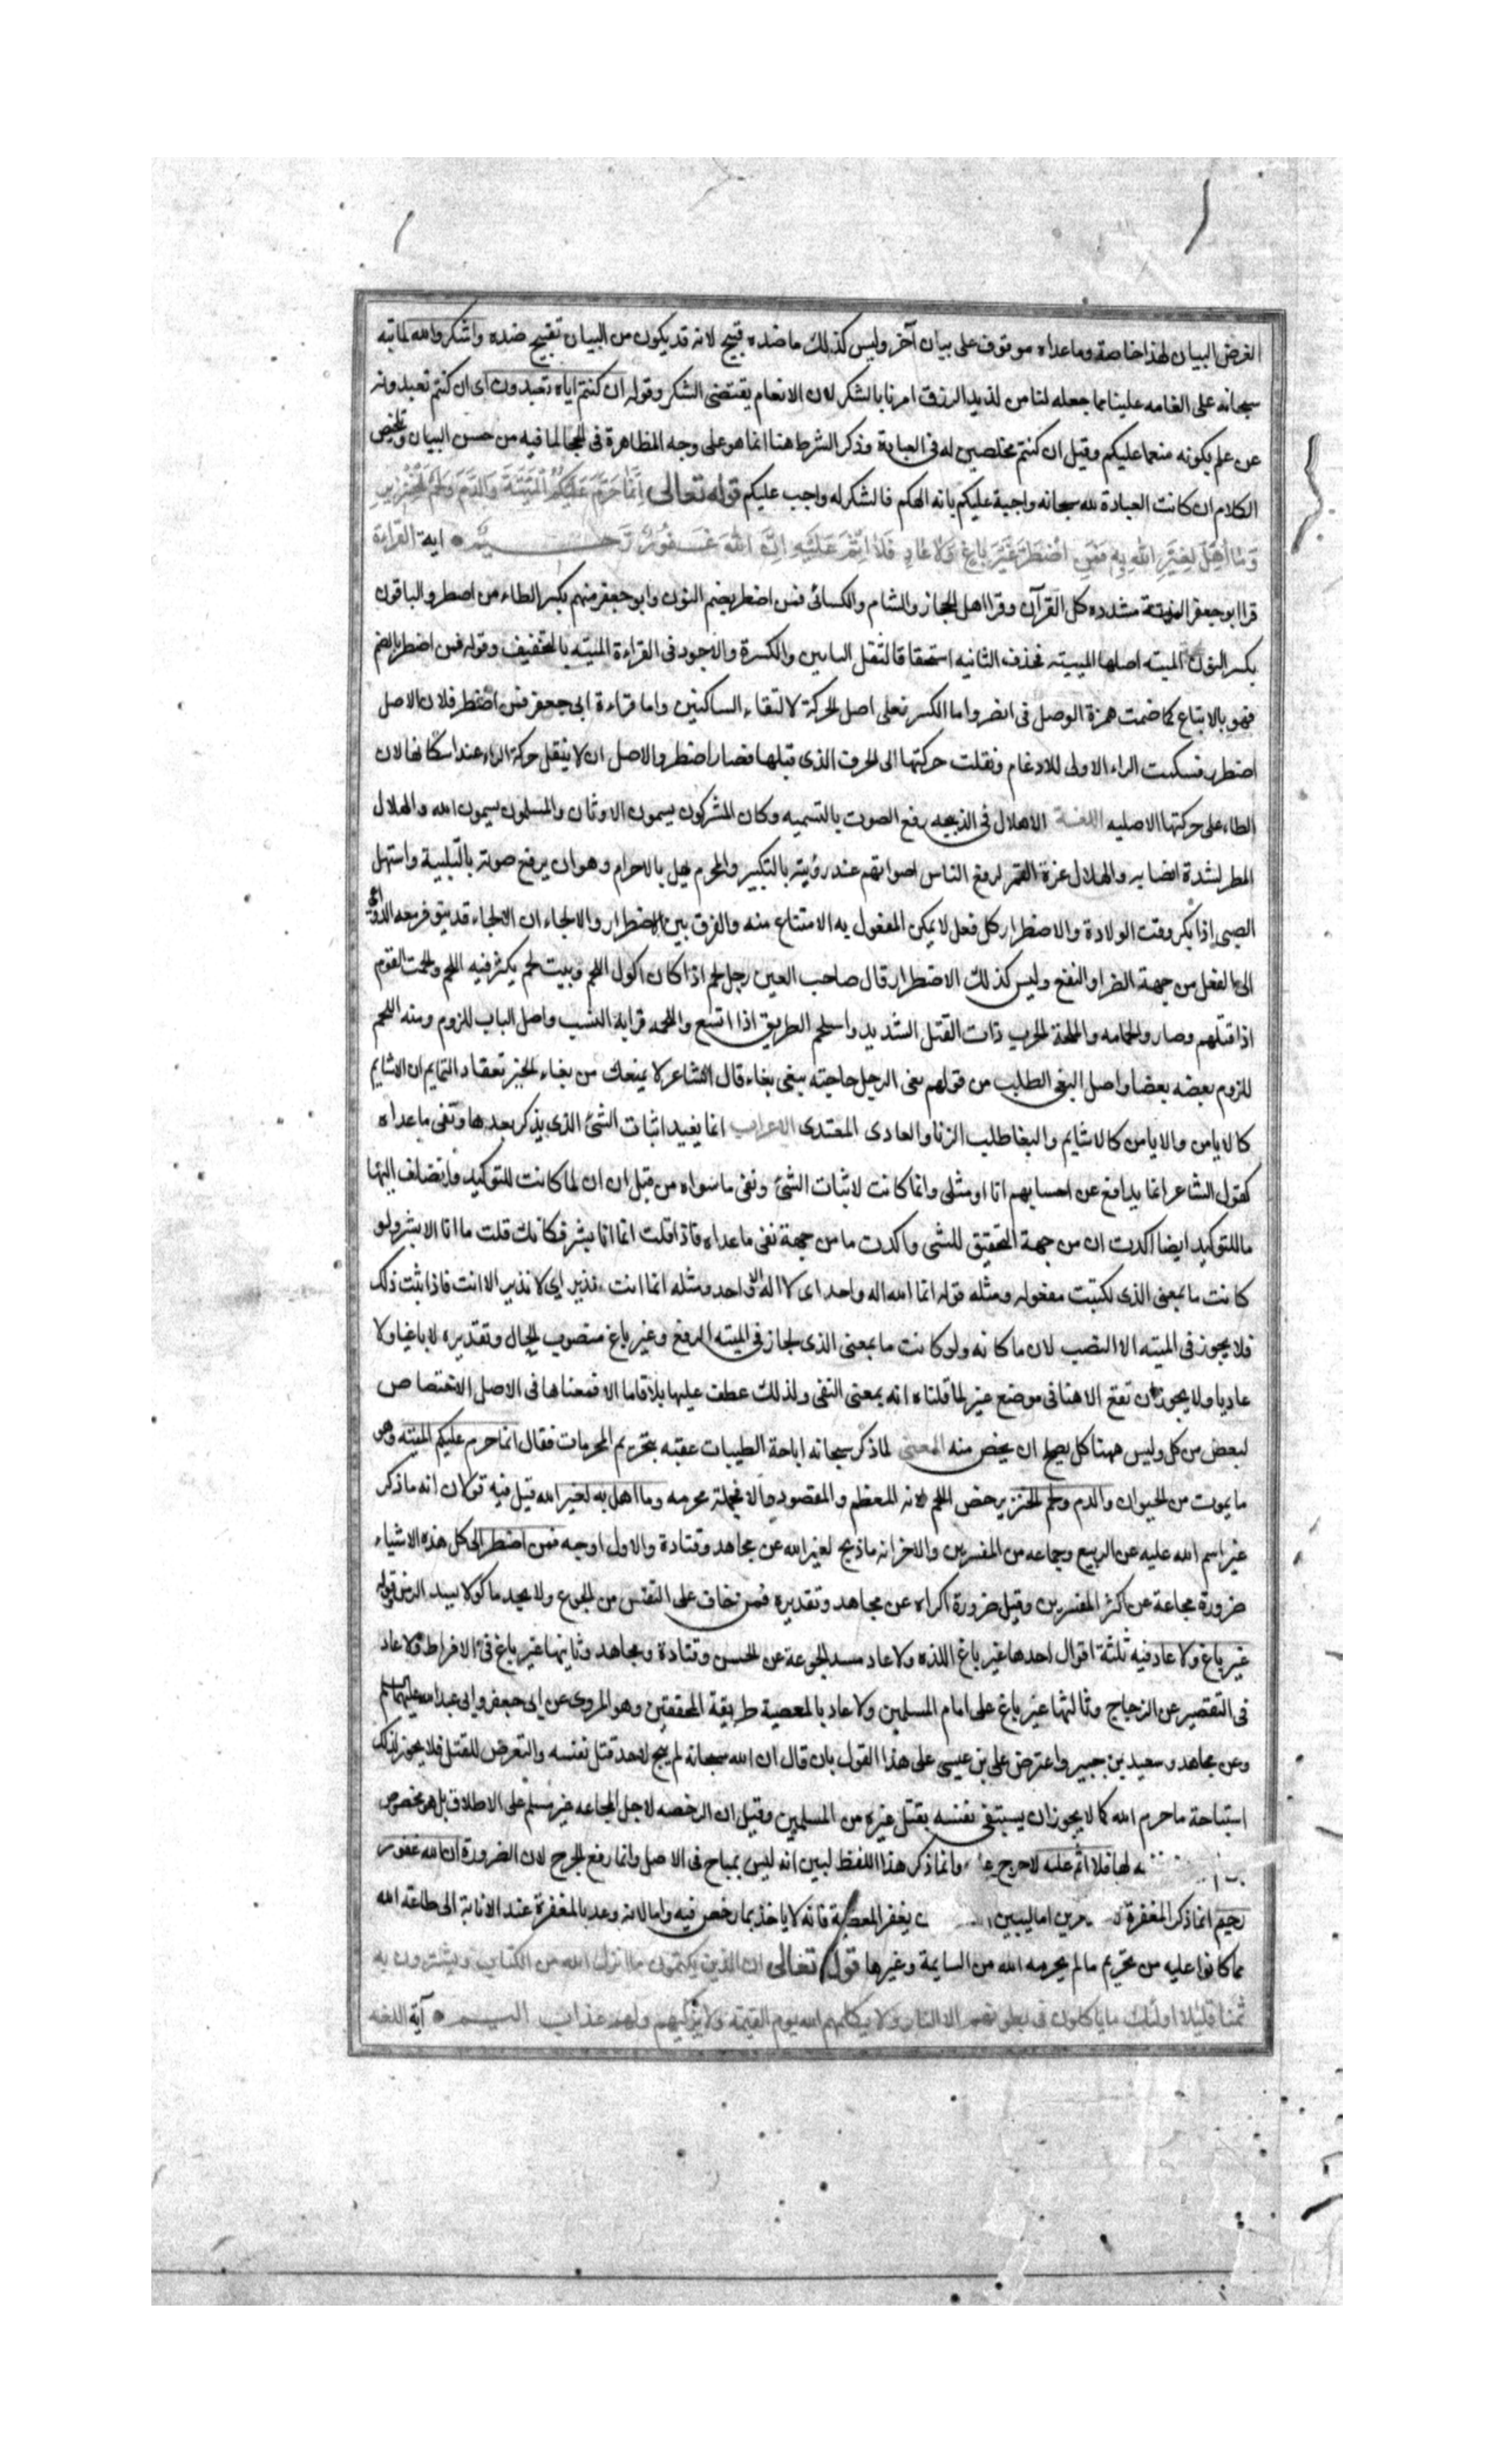 الغرض البيان لهذا خاصة وماعداه موقوف على بيان آخر وليس كذلك ماضده قبيح لانه قد يكون من البيان تقبيح ضده واشكروا لله لما نبه
سبحانه على انعامه علينا مما جعله لنا من لذيذ الرزق امرنا بالشكر لان الانعام يقتضى الشكر وقوله ان كنتم اياه تعبدون اى ان كنتم تعبدونه
عن علم بكونه منعما عليكم وقيل ان كنتم مخلصين له فى العبادة وذكر الشرط هنا انما هو على وجه المظاهرة فى الحجاج لما فيه من حسن البيان وتلخيص
الكلام ان كانت العبادة لله سبحانه واجبة عليكم بانه الهكم فالشكر له واجب عليكم قوله تعالى اِنَّمَا حَرَّمَ عَلَيْكُمُ الْمَيْتَةَ وَالدَّمَ وَلَحْمَ الْخِنْزِيرِ
وَمَا اُهِلَّ لِغَيْرِ اللهِ بِهِ فَمَنِ اضْطُرَّ غَيْرَ بَاغٍ وَلَا عَادٍ فَلَا اِثْمَ عَلَيْهِ اِنَّ اللهَ غَفُورٌ رَحِيمٌ اية القراءة
قرا ابو جعفر الميتة مشدده كل القرآن وقرا اهل الحجاز والشام والكسائى فمن اضطر بضم النون وابو جعفر منهم بكسر الطاء من اضطر والباقون
بكسر النون الميته اصلها الميييته فحذف الثانيه استخفافا لثقل الياءين والكسرة والاجود فى القراءة الميته بالتخفيف وقوله فمن اضطر بالضم
فهو بالاتباع كما ضمت همزة الوصل فى انصر واما الكسر فعلى اصل الحركة لالتقاء الساكنين واما قراءة ابى جعفر فمن اضطر فلان الاصل
اضطرر فسكنت الراء الاولى للادغام ونقلت حركتها الى الحرف الذى قبلها فصار اضطر والاصل ان لا ينقل حركة الراء عند اسكانها لان
الطاء على حركتها الاصليه اللغة الاهلال فى الذبيحه رفع الصوت بالتسميه وكان المشركون يسمون الاوثان والمسلمون يسمون الله والهلال
المطر لشدة انصبابه والهلال غرة القمر لرفع الناس اصواتهم عند رؤيته بالتكبير والمحرم يهل بالاحرام وهو ان يرفع صوته بالتلبية واستهل
الصبى اذا بكى وقت الولادة والاضطرار كل فعل لا يمكن المفعول به الامتناع منه والفرق بين الاضطرار والالجاء ان الالجاء قد يتوفر معه الدواعى
الى الفعل من جهة الضر او النفع وليس كذلك الاضطرار قال صاحب العين رجل لحم اذا كان اكول اللحم وبيت لحم يكثر فيه اللحم ولحمت القوم
اذا قتلهم وصاروا لحما والملحمة الحرب ذات القتل الشديد واستلحم الطريق اذا اتسع واللحمه قرابة النسب واصل الباب اللزوم ومنه اللحم
للزوم بعضه بعضا واصل البغى الطلب من قولهم بغى الرجل حاجته يبغى بغاء قال الشاعر لا يمنعك من بغاء الخير تعقاد التمايم ان الاشايم
كالايامن والايامن كالاشايم والبغا طلب الزنا والعادى المعتدى الاعراب انما يفيد اثبات الشئ الذى يذكر بعدها ونفى ما عداه
كقول الشاعر انما يدافع عن احسابهم انا او مثلى وانما كانت لاثبات الشئ ونفى ماسواه من قبل ان ان لما كانت للتوكيد وانضاف اليها
ما للتوكيد ايضا اكدت ان من جهة التحقيق للشى واكدت ما من جهة نفى ماعداه فاذا قلت انما انا بشر فكانك قلت ما انا الا بشر ولو
كانت ما بمعنى الذى لكتبت مفصوله ومثله قوله انما الله اله واحد اى لا اله الا واحد ومثله انما انت نذير اى لا نذير الا انت فاذا ثبت ذلك
فلا يجوز فى الميته الا النصب لان ما كافه ولو كانت ما بمعنى الذى لجاز فى الميته الرفع وغير باغ منصوب الحال وتقديره لا باغيا ولا
عاديا ولا يجوز ان تقع الا هنا فى موضع غير لما قلناه انه بمعنى النفى ولذلك عطف عليها بلا فاما الا فمعناها فى الاصل الاختصاص
لبعض من كل وليس ههنا كل يصح ان يخص منه المعنى لما ذكر سبحانه اباحة الطيبات عقبه بتحريم المحرمات فقال انما حرم عليكم الميته وهو
ما يموت من الحيوان والدم ولحم الخنزير خص اللحم لانه المعظم والمقصود والا فجملته محرمه وما اهل به لغير الله قيل فيه قولان انه ما ذكر
غير اسم الله عليه عن الربيع وجماعه من المفسرين والاخر انه ما ذبح لغير الله عن مجاهد وقتادة والاول اوجه فمن اضطر الى كل هذه الاشياء
ضرورة مجاعة عن اكثر المفسرين وقيل ضرورة اكراه عن مجاهد وتقديره فمن خاف على النفس من الجوع ولا يجد ماكولا يسد الرمق وقوله
غير باغ ولا عاد فيه ثلثة اقوال احدها غير باغ اللذه ولا عاد سد الجوعة عن الحسن وقتادة ومجاهد وثانيها غير باغ فى الافراط ولا عاد
فى التقصير عن الزجاج وثالثها غير باغ على امام المسلمين ولا عاد بالمعصية طريقة المحققين وهو المروى عن ابى جعفر وابى عبد الله عليهما السلم
وعن مجاهد وسعيد بن جبير واعترض على بن عيسى على هذا القول بان قال ان الله سبحانه لم يبح لاحد قتل نفسه والتعرض للقتل فلا يجوز لذلك
استباحة ما حرم الله كما لا يجوز ان يستبقى نفسه بقتل غيره من المسلمين وقيل ان الرخصه لاجل المجاعه غير مسلم على الاطلاق بل هو مخصوص
لها فلا اثم عليه لا حرج وانما ذكر هذا اللفظ لبين انه ليس بمباح فى الاصل وانما رفع الحرج لان الضرورة ان الله غفور
رحيم انما ذكر المغفرة اما ليبين يغفر المعصية فانه لا ياخذ بما رخص فيه واما لانه وعد بالمغفرة عند الانابة الى طاعة الله
مما كانوا عليه من تحريم مالم يحرمه الله من السايبة وغيرها قوله تعالى ان الذين يكتمون ما انزل الله من الكتاب ويشترون به
ثمنا قليلا اولئك ما ياكلون فى بطونهم الا النار ولا يكلمهم الله يوم القيمة ولا يزكيهم ولهم عذاب اليم آية اللغه